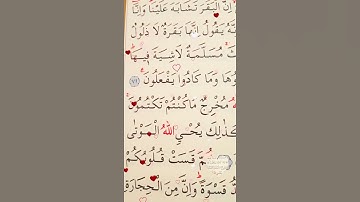 إِنَّ الْبَقَرَ تَشَابَهَ عَلَيْنَا وَإِنَّا
يَقُولُ إِنَّهَا بَقَرَةٌ لَا ذَلُولٌ
مُسَلَّمَةٌ لَا شِيَةَ فِيهَا
وَمَا كَادُوا يَفْعَلُونَ ﴿٧١﴾
مُخْرِجٌ مَا كُنْتُمْ تَكْتُمُونَ
كَذٰلِكَ يُحْيِي اللّٰهُ الْمَوْتٰى
قَسَتْ قُلُوبُكُمْ
قَسْوَةً وَإِنَّ مِنَ الْحِجَارَةِ